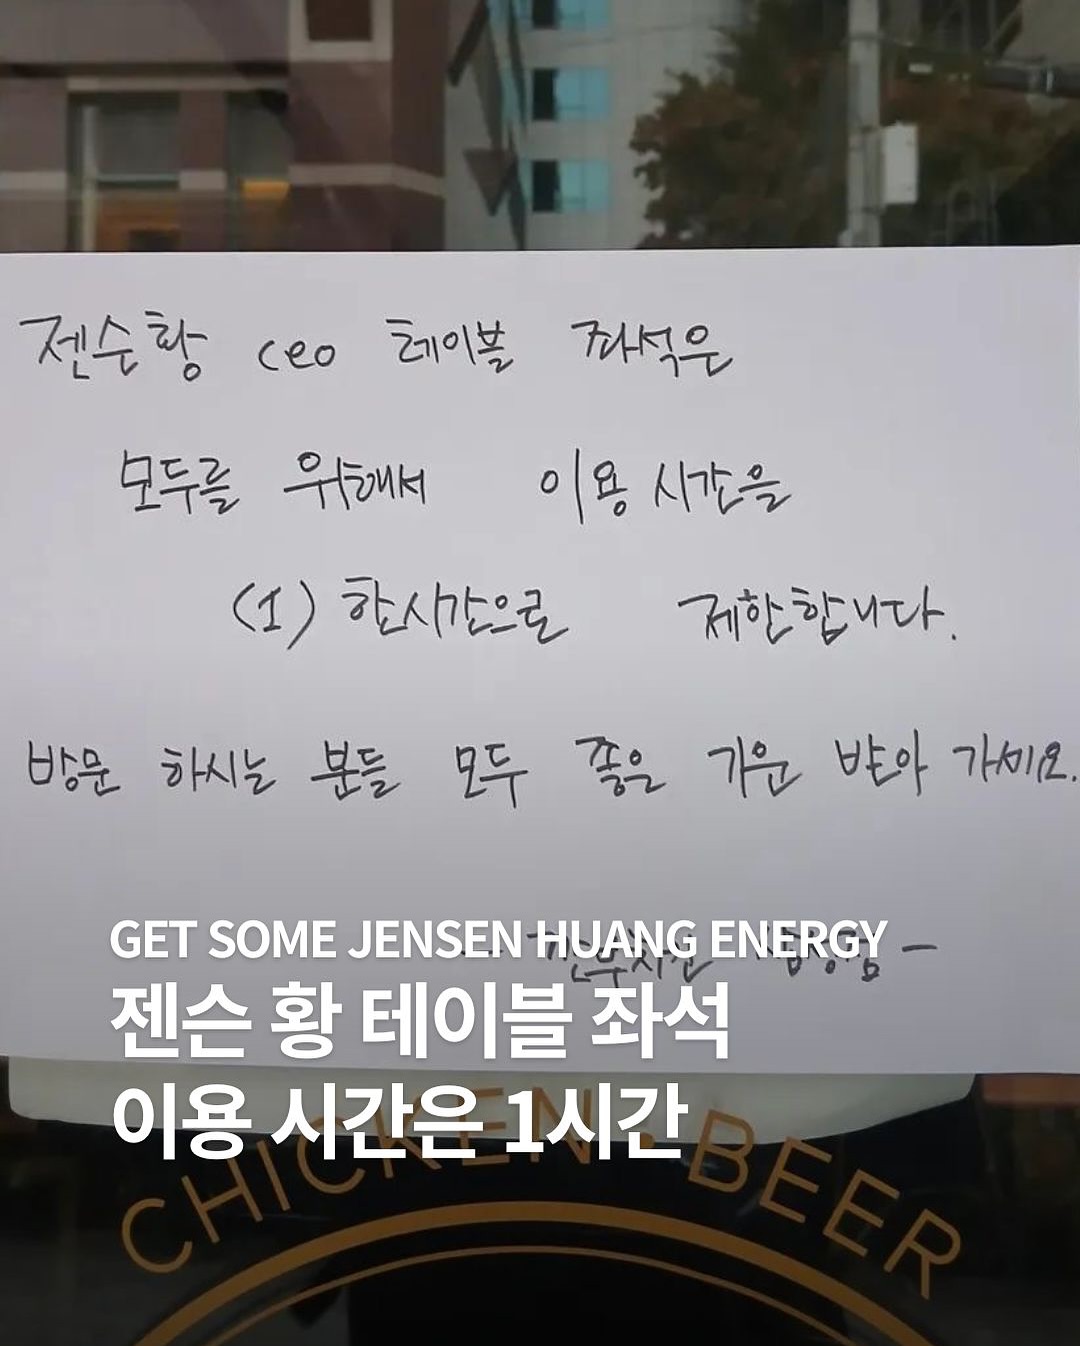 젠슨황 ceo 테이블 좌석은
모두를 위해서 이용 시간을
(1) 한시간으로 제한합니다.
방문 하시는 분들 모두 좋은 기운 받아 가세요.
GET SOME JENSEN HUANG ENERGY
젠슨 황 테이블 좌석
이용 시간은 1시간
CHICKEN · BEER